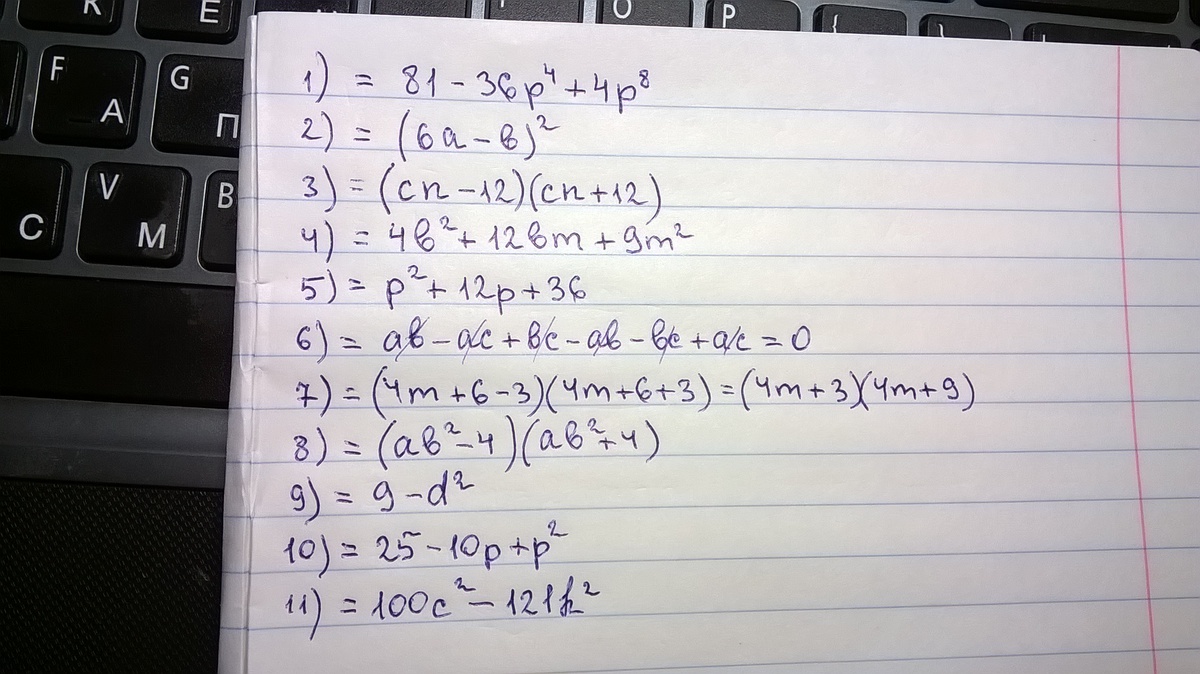 K E O P { }
F A G П
1) = 81 - 36p⁴ + 4p⁸
2) = (6a - b)²
V M B
C
3) = (cn - 12)(cn + 12)
4) = 4b² + 12bm + 9m²
5) = p² + 12p + 36
6) = ab - ac + bc - ab - bc + ac = 0
7) = (4m + 6 - 3)(4m + 6 + 3) = (4m + 3)(4m + 9)
8) = (ab² - 4)(ab² + 4)
9) = 9 - d²
10) = 25 - 10p + p²
11) = 100c² - 121k²